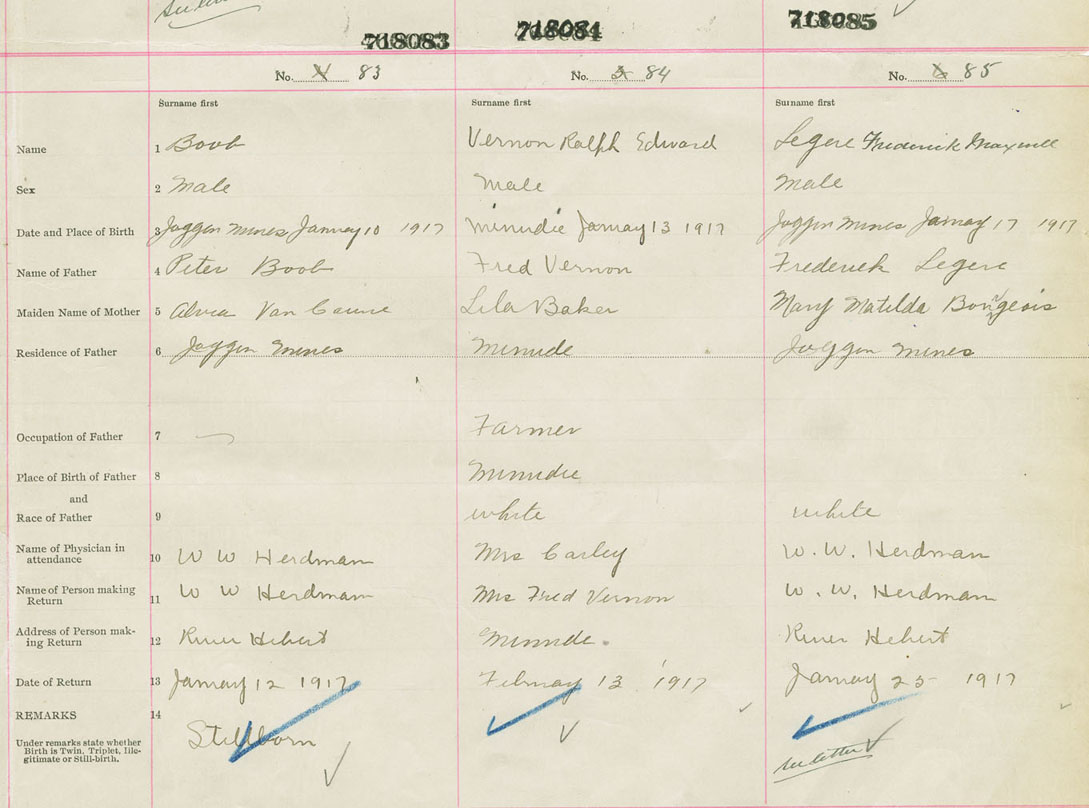 see letter
718083 718084 718085
No. 4 83 No. 5 84 No. 6 85
Surname first Surname first Surname first
Name 1 Boob Vernon Ralph Edward Legere Frederick Maxwell
Sex 2 Male Male Male
Date and Place of Birth 3 Joggin Mines January 10 1917 Minudie January 13 1917 Joggin Mines January 17 1917
Name of Father 4 Peter Boob Fred Vernon Frederick Legere
Maiden Name of Mother 5 Van Lila Baker Mary Matilda Bourgeois
Residence of Father 6 Joggin Mines Minudie Joggin Mines
Occupation of Father 7 Farmer
Place of Birth of Father 8 Minudie
and
Race of Father 9 white white
Name of Physician in
attendance 10 W W Herdman Mrs W. W. Herdman
Name of Person making
Return 11 W W Herdman Mrs Fred Vernon W. W. Herdman
Address of Person mak-
ing Return 12 River Hebert Minudie River Hebert
Date of Return 13 January 12 1917 February 13 1917 January 25 1917
REMARKS 14
Stillborn
Under remarks state whether
Birth is Twin, Triplet, Ille-
gitimate or Still-birth.
see letter